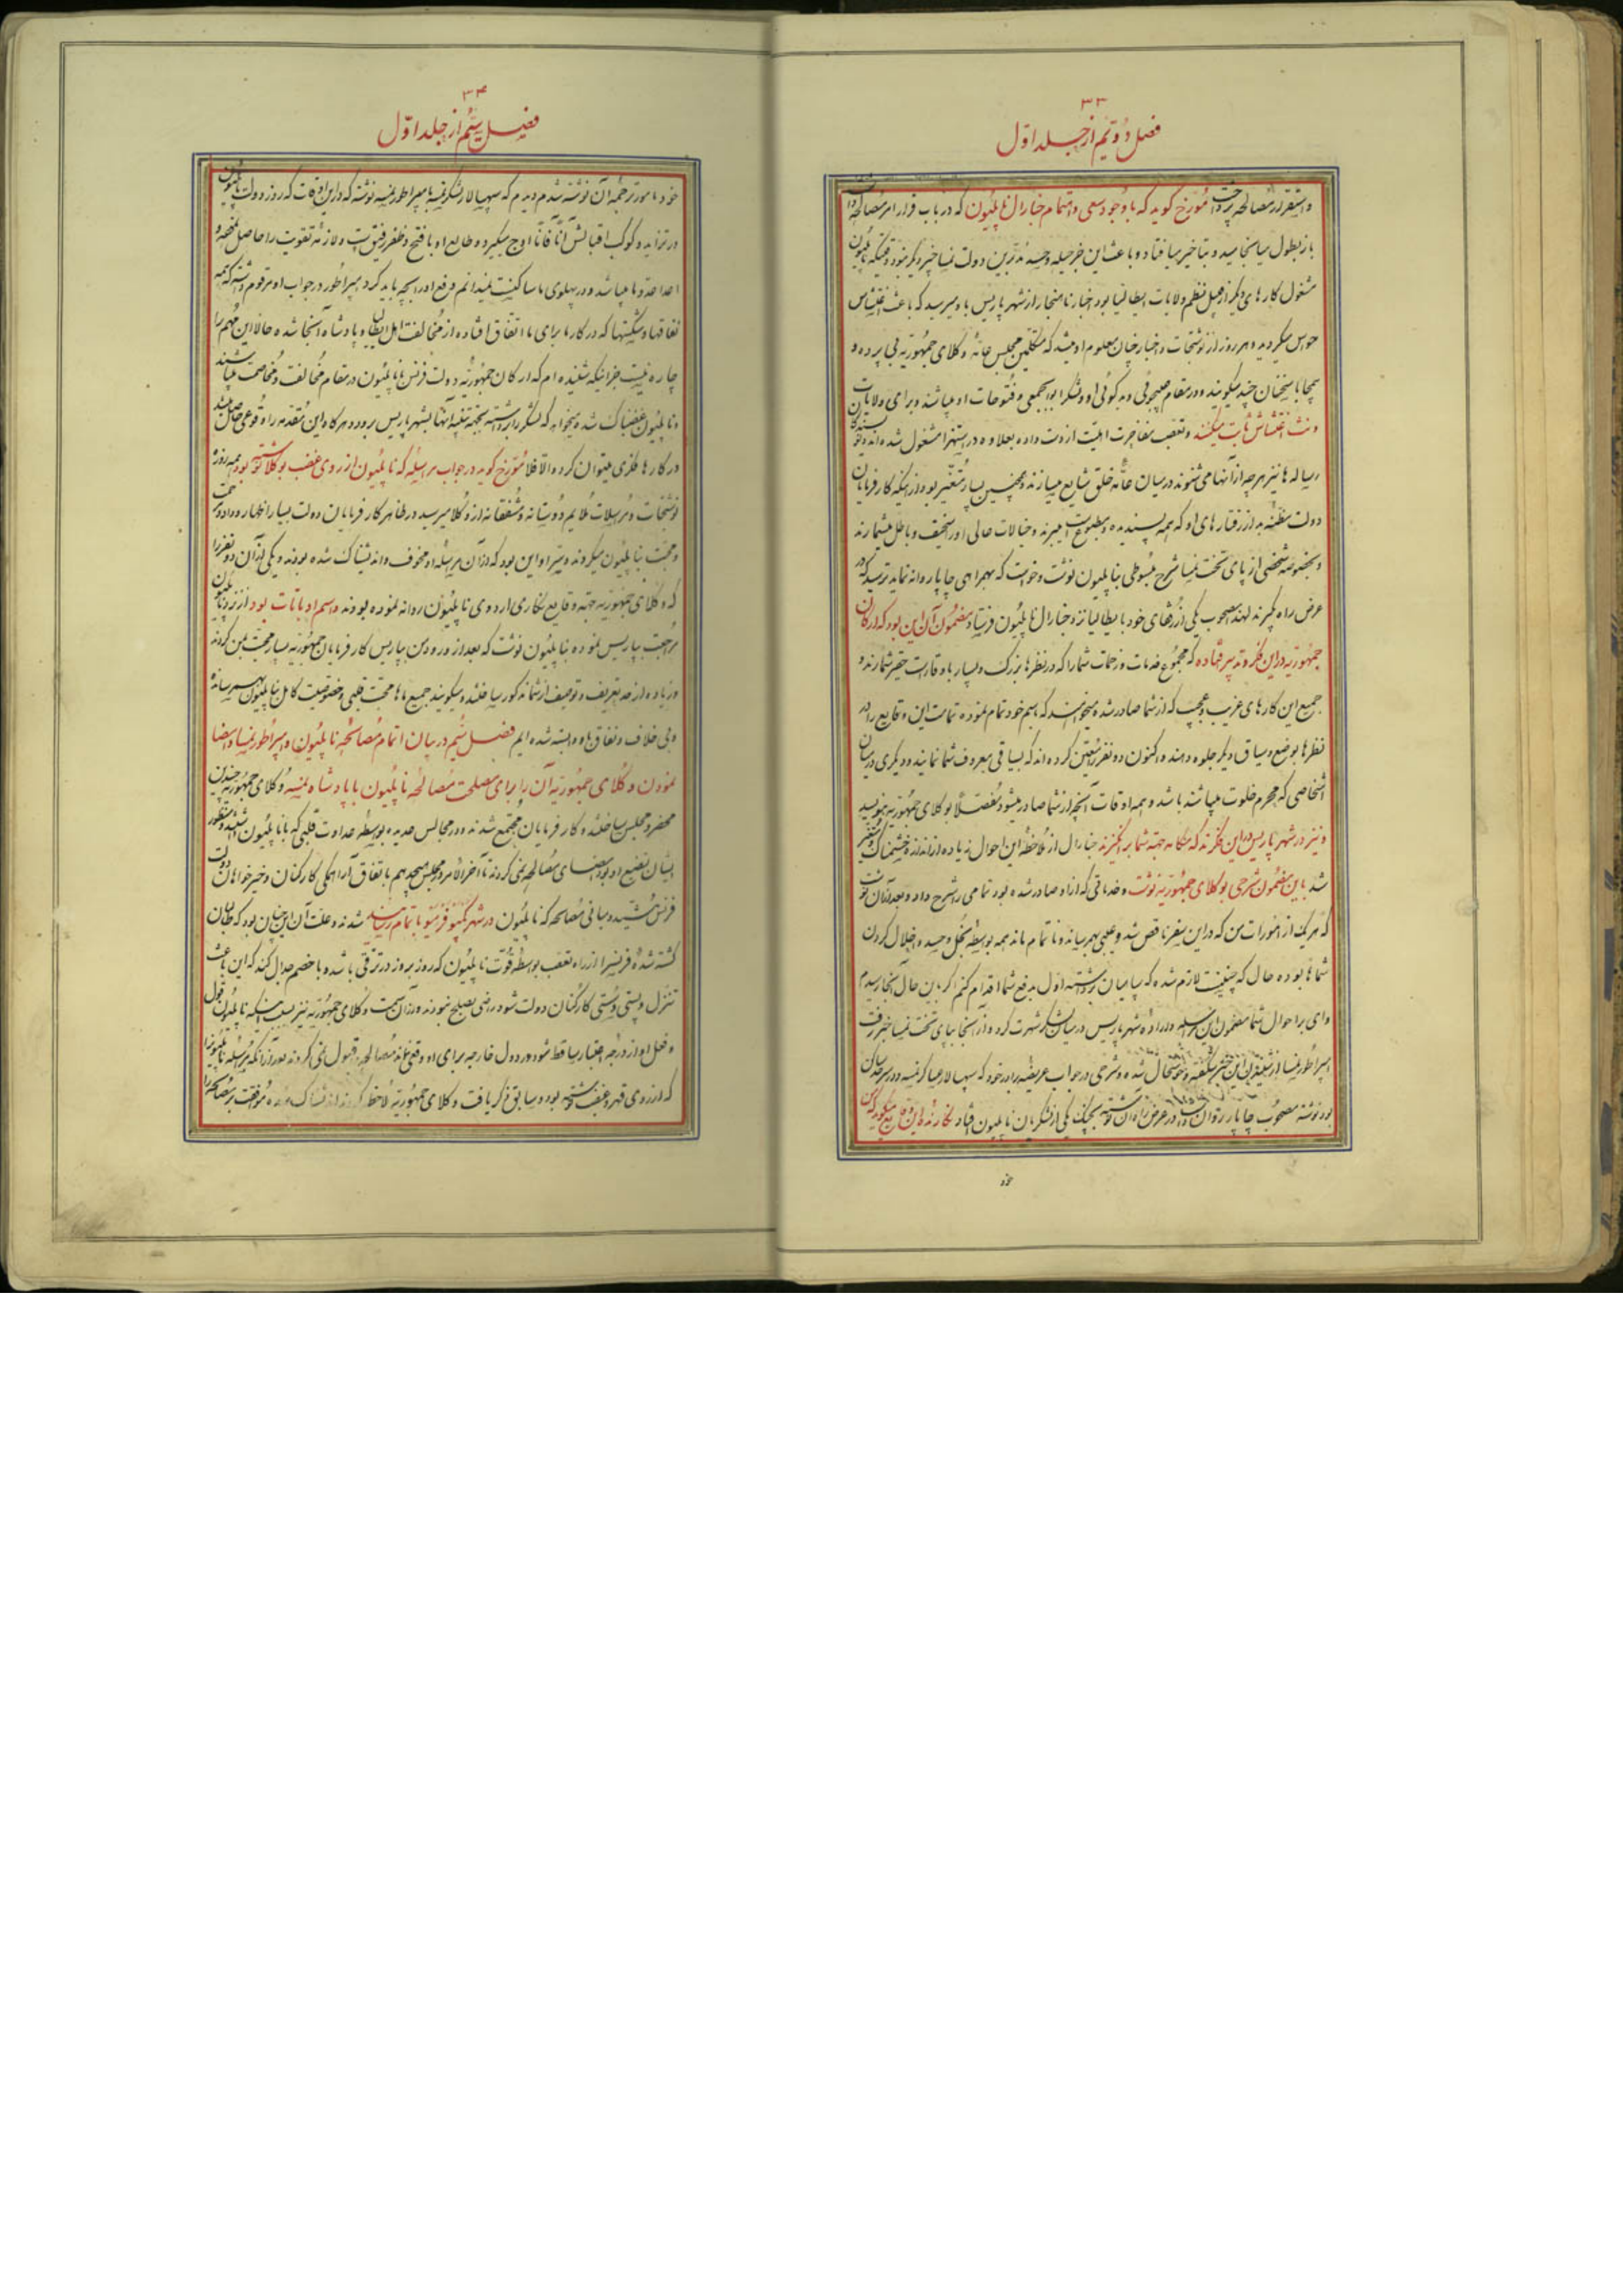 ۳۳
فصل دویم از جلد اول
و استقرار مصالحه پرداخت مورخ گوید که با وجود سعی و اهتمام جنارال ناپلیون که در باب قرار امر مصالحه
باز بطول میانجامید و بتاخیر میافتاد و باعث این جز حیله و تدبیرین دولت نمسا چیز دیگر نبود وقتیکه ناپلیون
مشغول کارهای دیگر از قبیل نظم ولایات ایطالیا بود اخبار ناهنجار از شهر پاریس باو میرسید که باعث اغتشاش
حواس میگردید و هر روز از نوشتجات و اخبار چنان معلوم او میشد که متکلمین مجلس عامه وکلای جمهوریه بی پرده و
بیمحابا سخنان چند میگویند و در مقام عیبجوئی و بدگوئی او و لشکر ابوابجمعی و فتوحات او میباشند و برای ولایات
رساله ها نیز هرچه از آنها می شنوند در میان عامه خلق شایع میسازند و همچنین بسیار متغیر بود از اینکه کارفرمایان
دولت مظنه بد از رفتارهای او که همه پسندیده و مطبوع میبرند و خیالات عالی او را خفیف و باطل میشمارند
و بخصوصه شخصی از پای تخت نمسا شرح مبسوطی بناپلیون نوشت و خواست که بهمراهی چاپار روانه نماید ترسید که در
عرض راه بگیرند لهذا مصحوب یکی از رفقای خود بایطالیا نزد جنارال ناپلیون فرستاد مضمون آن این بود که ارکان
جمهوریه در این فکر و تدبیر افتاده که مجموع خدمات و زحمات شما را که در نظرها بزرگ و بسیار باوقار است حقیر شمارند و
جمیع این کارهای غریب و عجیب که از شما صادر شده میخواهند که باسم خود تمام نموده تمامت این وقایع را در
نظرها بوضع و سیاق دیگر جلوه دهند و اکنون دو نفر تعیین کرده اند که بسیاقی معروف شما نمایند و دیگری در میان
اشخاصی که محرم خلوت میباشند باشد و همه اوقات آنچه از شما صادر میشود مفصلاً بوکلای جمهوریه بنویسد
و نیز در شهر پاریس در این فکرند که هنگامه جهة شما برانگیزند جنارال از ملاحظه این احوال زیاده از اندازه خشمناک و متغیر
شد باین مضمون شرحی بوکلای جمهوریه نوشت و خدماتی که از او صادر شده بود تمامی را شرح داد و بعد از آن نوشت
که هر یک از امورات من که در این سفر ناقص شد و عیبی بهمرسانید و ناتمام ماند همه بواسطه بخل و حسد و اخلال کردن
شماها بوده حال که چنین است لازم شده که سپاهیان برداشته اول بدفع شما اقدام کنم گر باین حال آنجا رسیدم
وای بر احوال شما مضمون این مراسله در اردو و شهر پاریس در میان لشکر شهرت کرده از آنجا بپای تخت نمسا خبر رفت
امپراطور نمسا از شنیدن این خبر شکفته و خوشحال شده و شرحی در جواب عریضه برادر خود که سپهسالار عساکر نمسه و در سرحد
بود نوشته مصحوب چاپار روان داشت در عرض راه آن نوشته بچنگ یکی از لشکریان ناپلیون افتاد نگارنده این وقایع میگوید که من
خود
۳۴
فصل سیم از جلد اول
خود مامور ترجمه آن نوشته شدم دیدم که سپهسالار لشکر نمسه بامپراطور نمسه نوشته که در این اوقات که روز دولت ناپلیون
در تزاید و کوکب اقبالش آناً فآناً اوج میگیرد و طالع او با فتح و ظفر رفیق است و لازمه تقویت را حاصل
اعدا عدو ما میباشد و در پهلوی ما ساکنست نمیدانم دفع او را بچه باید کرد امپراطور در جواب او مرقوم داشته که همه
نفاقها و شکستها که در کار ما برای ما اتفاق افتاده از مخالفت اهل ایطالیا و پادشاه آنجا شده حالا این مهم را
چاره نیست جز اینکه شنیده ام که ارکان جمهوریه دولت فرنس با ناپلیون در مقام مخالفت و مخاصمت میباشند
و ناپلیون غضبناک شده میخواهد که لشکر را برداشته بجهة تنبیه آنها بشهر پاریس برود هرگاه این مقدمه را وقوعی حاصل میشد
در کارها فکری میتوان کرد و الا فلا مورخ گوید در جواب مراسله که ناپلیون از روی غضب بوکلا نوشته بود همه روزه
نوشتجات و مراسلات ملایم و دوستانه و مشفقانه از وکلا میرسید در ظاهر کارفرمایان دولت بسیار اظهار وداد و
و محبت بناپلیون میکردند و سر او این بود که از آن مراسله او مخوف و اندیشناک شده بودند و یکی از آن دو نفر را
که وکلای جمهوریه جهة وقایع نگاری اردوی ناپلیون روانه نموده بودند و اسم او باتات بود از نزد ناپلیون
مراجعت بپاریس نموده بناپلیون نوشت که بعد از ورود من بپاریس کارفرمایان جمهوریه بسیار محبت بمن کردند
و زیاده از حد تعریف و توصیف از شما مذکور ساختند و میگویند جمیع ماها محبت قلبی و خصوصیت کامل بناپلیون بهمرسانده
و بی خلاف و نفاق باو وابسته شده ایم فصل سیم در بیان اتمام مصالحه ناپلیون و امپراطور نمسا و امضا
نمودن وکلای جمهوریه آن را برای مصلحت مصالحه ناپلیون با پادشاه نمسه وکلای جمهوریه چندین
محضر و مجلس ساختند و کارفرمایان مجتمع شدند و در مجالس عدیده بواسطه عداوت قلبی که با ناپلیون داشتند و منظور
ایشان تضییع او بود امضای مصالحه نمی کردند تا آخر الامر در مجلس هیجدهم باتفاق آرا همگی کارکنان و خیرخواهان دولت
فرنس مصالحه که ناپلیون در شهر کمپو فرمیو باتمام رسانید شدند و علت آن این چنان بود که
گشته شده فرنسه را از راه تعصب بواسطه قوت ناپلیون که روز بروز در ترقی باشد و با خصم جدال کند که این باعث
تنزل و پستی و سستی کارکنان دولت شود راضی بصلح نبودند و از آن سمت وکلای جمهوریه نیز
و فعل او از درجه اعتبار ساقط شود و در دول خارجه برای او وقعی نماند مصالحه را قبول نمی کردند بعد از آنکه مراسله ناپلیون را
که از روی قهر و غضب نوشته بود و سابق ذکر یافت وکلای جمهوریه ملاحظه کردند اندیشناک شده موافقت بر مصالحه را